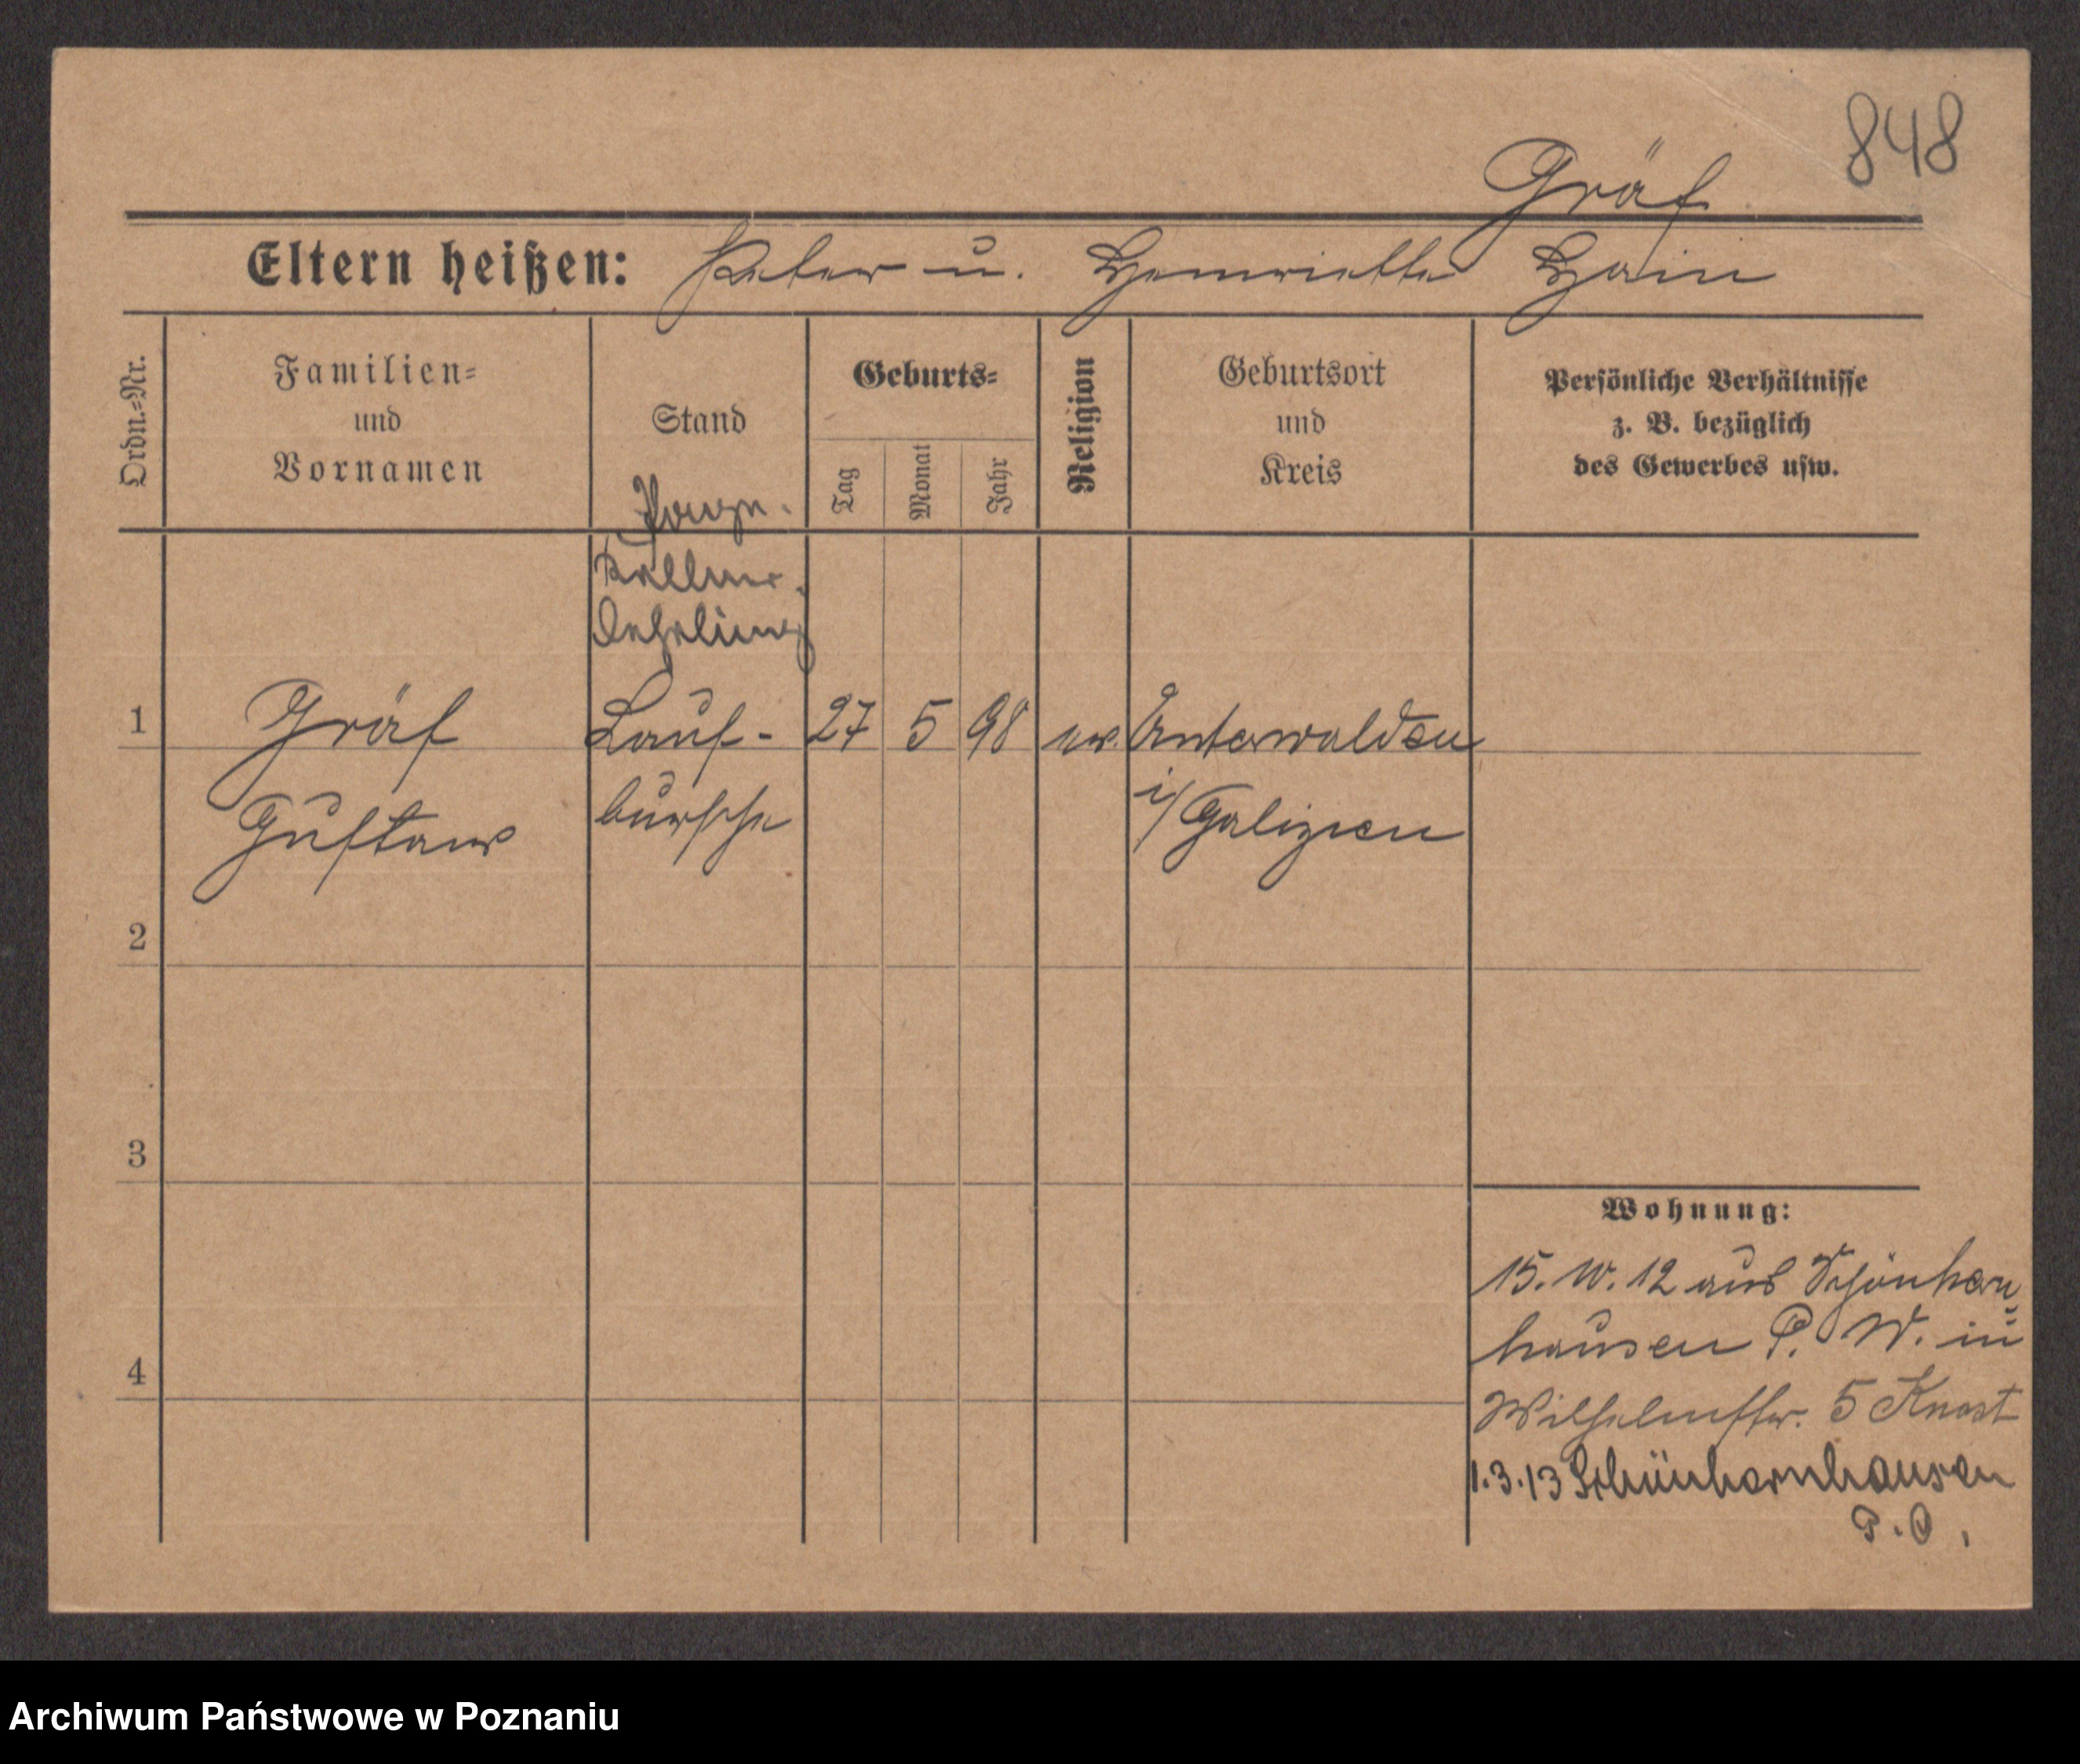 848
Gräf
Eltern heißen: Peter u. Henriette Hain
Ordn.=Nr.
Familien=
und
Vornamen
Stand
Geburts=
Tag
Monat
Jahr
Religion
Geburtsort
und
Kreis
Persönliche Verhältnisse
z. B. bezüglich
des Gewerbes usw.
Kellner
Lehrling
1 Gräf Lauf- 27 5 98 ev. Unterwalden
Gustav bursche i/ Galizien
2
3
4
Wohnung:
15. 10. 12 aus Schönhern
hausen P. W. in
Wilhelmstr. 5 Knost
1.3.13 Schönhernhausen
P. O.
Archiwum Państwowe w Poznaniu